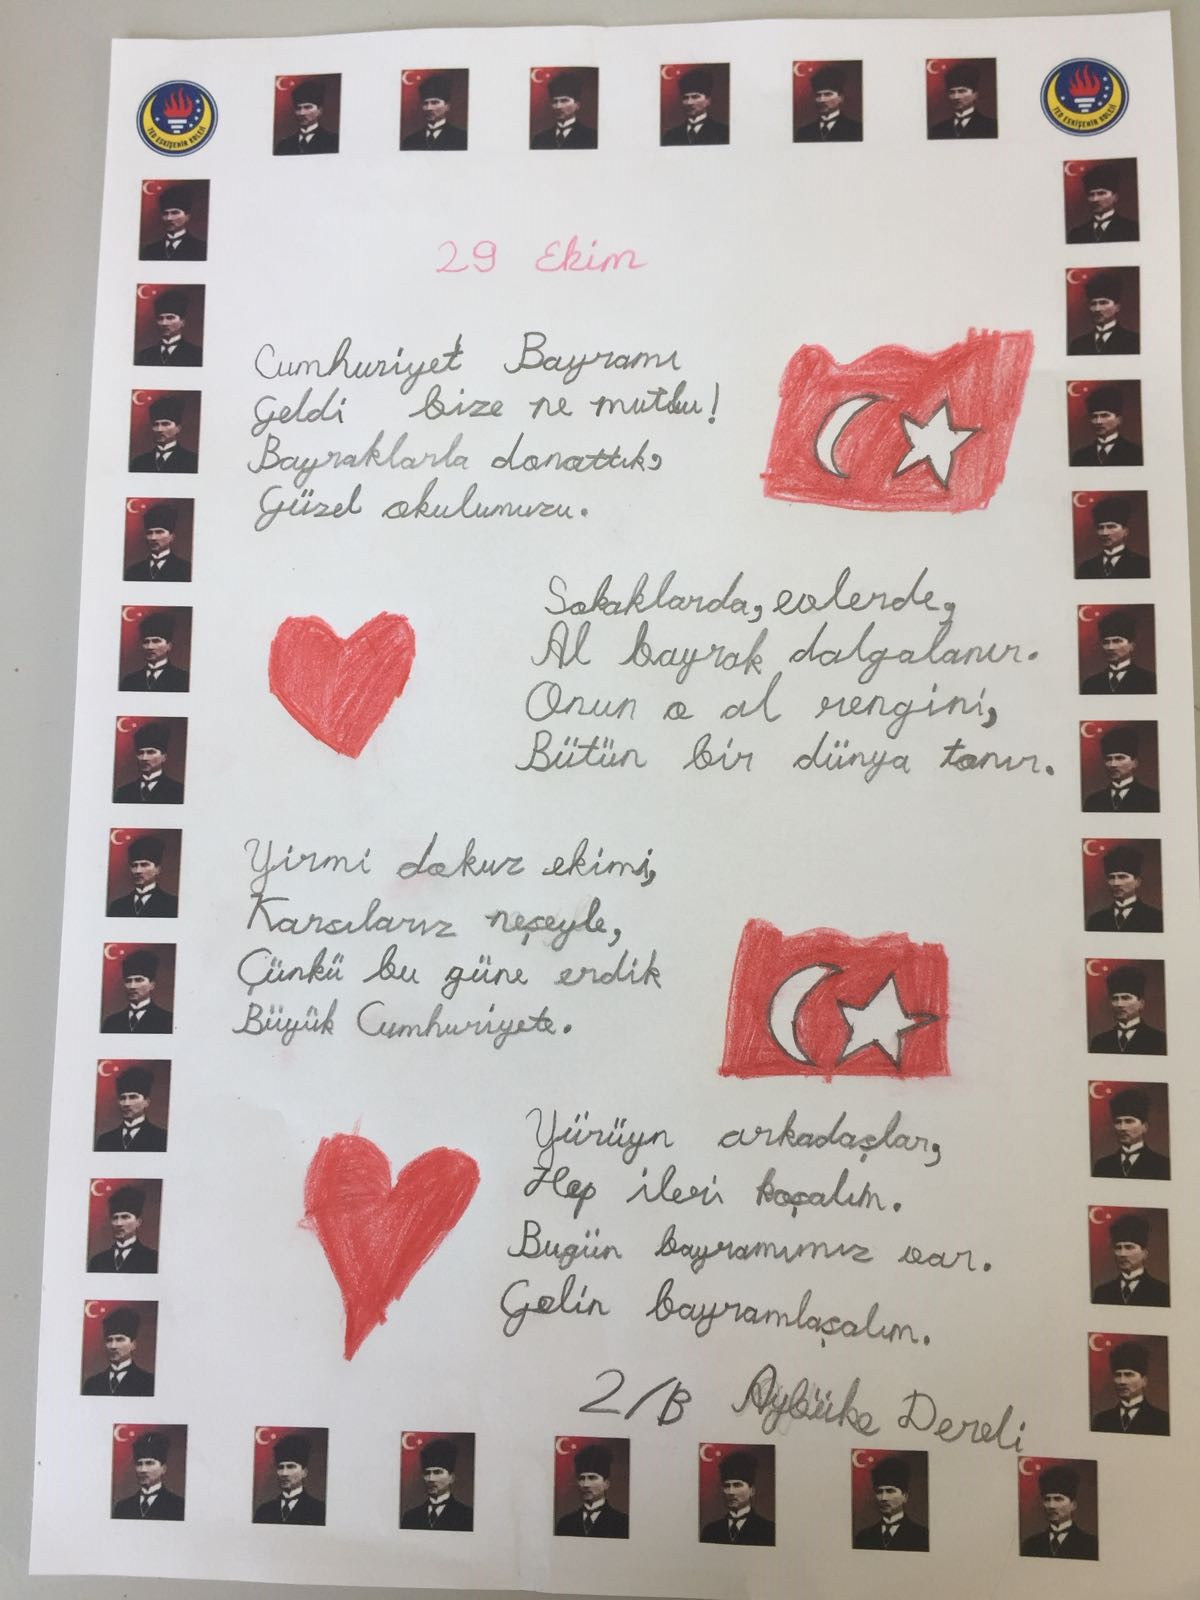 TED ESKİŞEHİR KOLEJİ
TED ESKİŞEHİR KOLEJİ
29 Ekim
Cumhuriyet Bayramı
Geldi bize ne mutlu!
Bayraklarla donattık,
Güzel okulumuzu.
Sokaklarda, evlerde,
Al bayrak dalgalanır.
Onun o al rengini,
Bütün bir dünya tanır.
Yirmi dokuz ekimi,
Karsılarız neşeyle,
Çünkü bu güne erdik
Büyük Cumhuriyete.
Yürüyn arkadaşlar,
Hep ileri koşalım.
Bugün bayramımız var.
Gelin bayramlaşalım.
2/B Aybüke Dereli